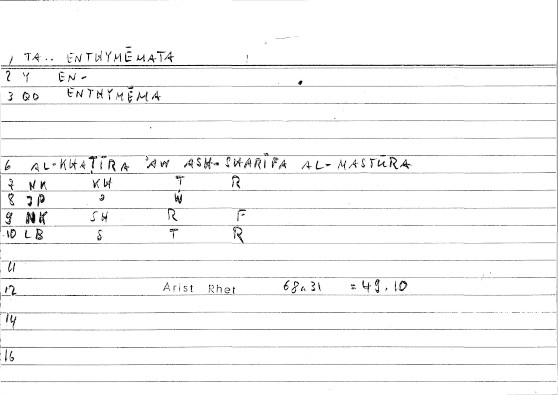 1 TA.. ENTHYMĒMATA
2 Y EN-
3 QO ENTHYMĒMA
6 AL-KHAṬĪRA 'AW ASH-SHARĪFA AL-MASTŪRA
7 NK KH Ṭ R
8 JP ' W
9 NK SH R F
10 LB S T R
11
12 Arist Rhet 68a31 = 49,10
14
16